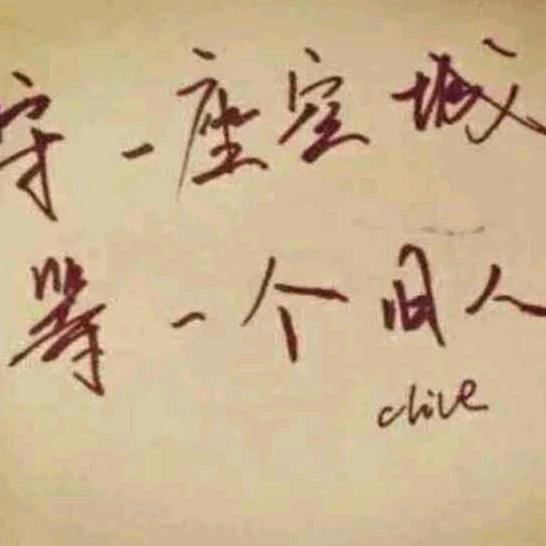 守一座空城
等一个旧人
clive